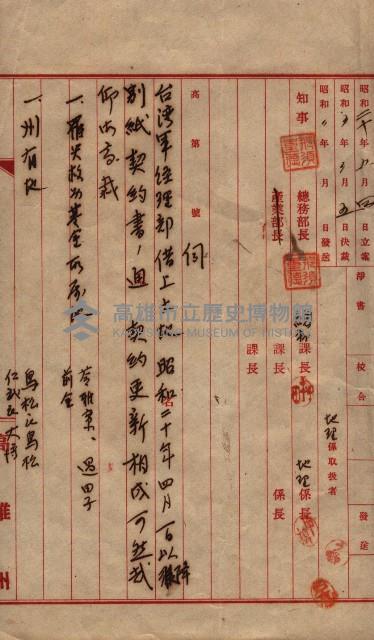 昭和二十年 月四日立案
昭和 年 月五日決裁
昭和 年 月 日發送
淨書
校合
發送
地理係取扱者
知事
總務部長
產業部長
課長
課長
課長
地理係長
係長
高第 號
伺
台灣軍經理部借上土地昭和二十年四月一日以降
別紙契約書ノ通契約更新相成可然哉
仰高裁
一、罹災救助基金所屬地
苓雅寮、過田子
前金
一、州有地
鳥松庄鳥松
仁武庄大灣
高雄州
高雄市立歷史博物館
KAOHSIUNG MUSEUM OF HISTORY